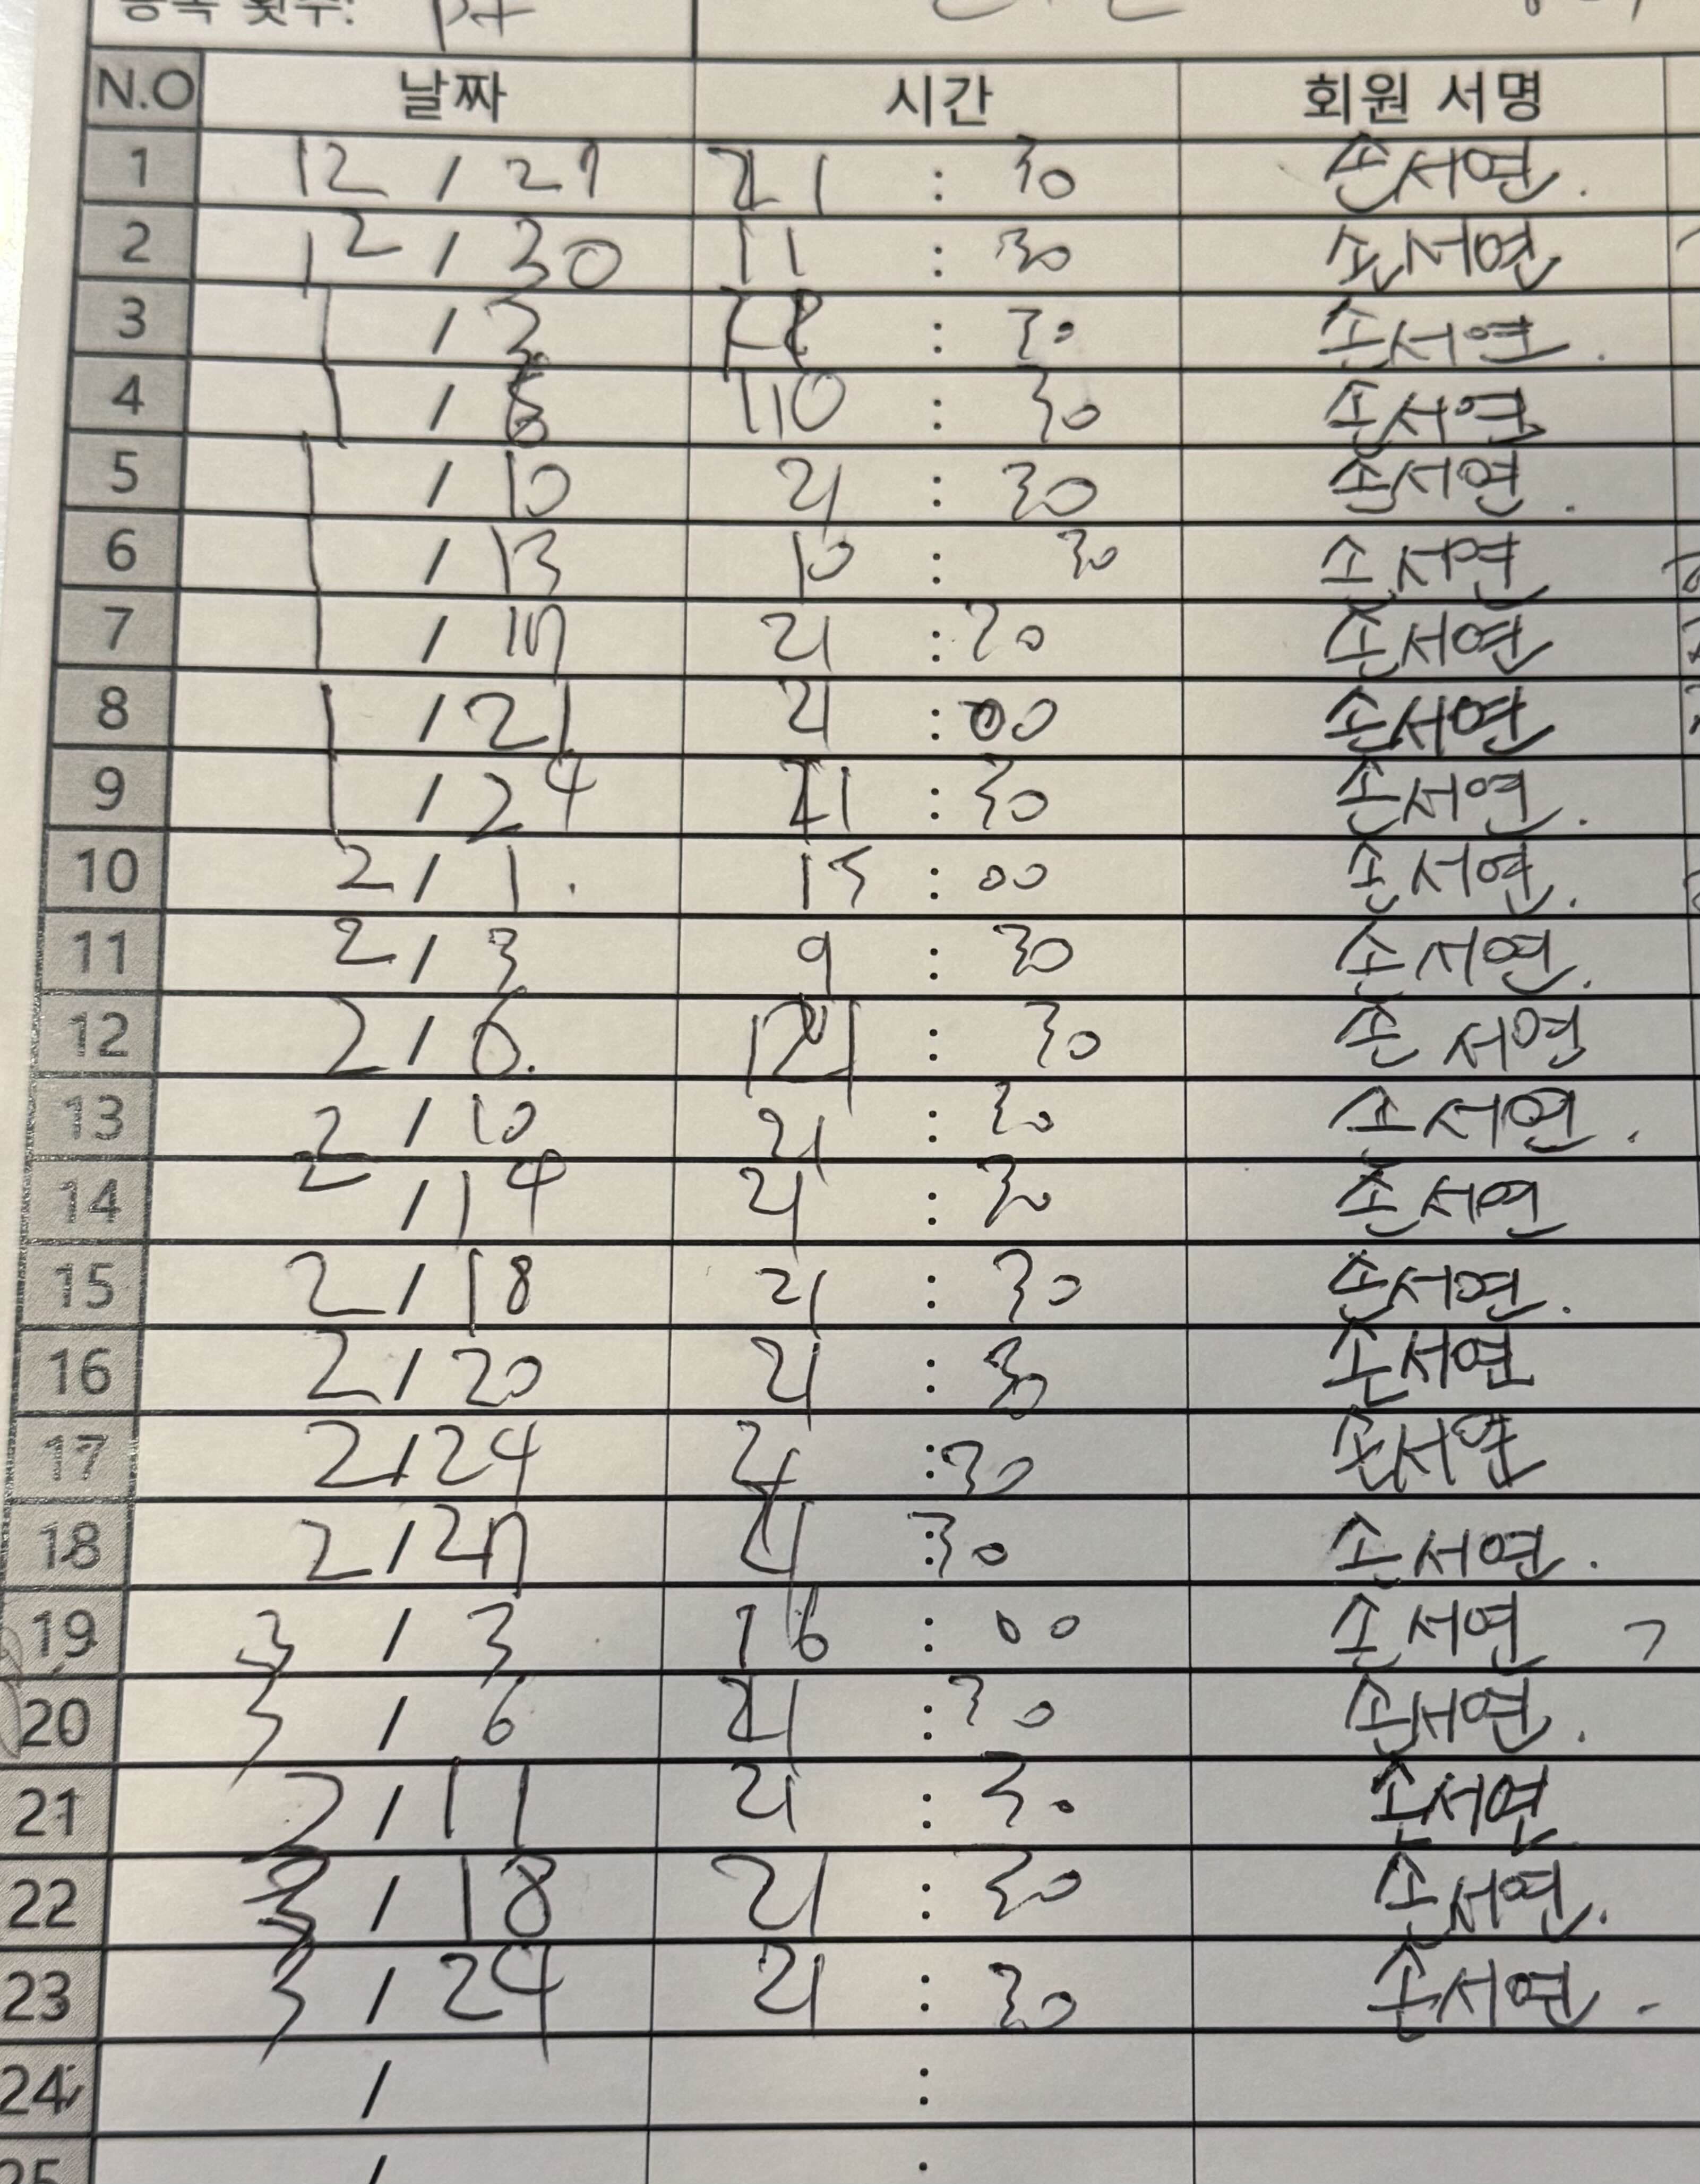 등록 횟수:
N.O 날짜 시간 회원 서명
1 12 / 27 21 : 30 손서연.
2 12 / 30 11 : 30 손서연
3 1 / 3 : 30 손서연.
4 1 / 6 10 : 30 손서연
5 1 / 10 21 : 30 손서연.
6 1 / 13 10 : 30 손서연
7 1 / 17 21 : 30 손서연
8 1 / 21 21 : 00 손서연
9 1 / 24 21 : 30 손서연.
10 2 / 1. 15 : 00 손서연.
11 2 / 3 9 : 30 손서연.
12 2 / 6. : 30 손서연
13 2 / 10 21 : 30 손서연.
14 2 / 14 21 : 30 손서연
15 2 / 18 21 : 30 손서연.
16 2 / 20 21 : 30 손서연
17 2 / 24 21 : 30 손서연
18 2 / 27 21 : 30 손서연.
19 3 / 3 16 : 00 손서연
20 3 / 6 21 : 30 손서연.
21 2 / 11 21 : 30 손서연
22 3 / 18 21 : 30 손서연.
23 3 / 24 21 : 30 손서연.
24 / :
25 / :